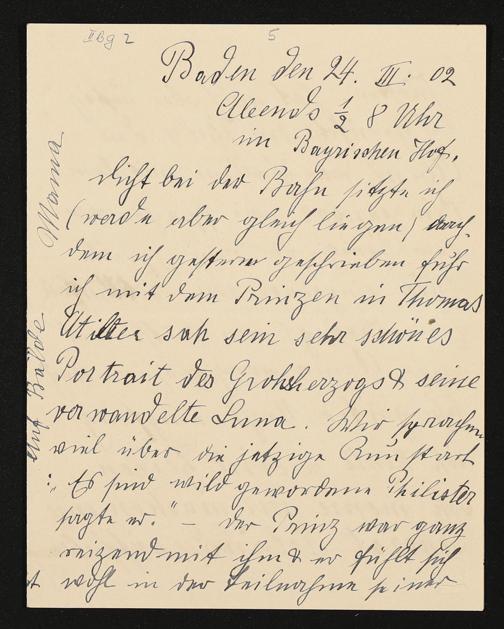 IIBg 2
5
Baden den 24. III. 02
Abends ½ 8 Uhr
im Bayrischen Hof.
dicht bei der Bahn sitzte ich
(werde aber gleich liegen) nach-
dem ich gestern geschrieben fuhr
ich mit dem Prinzen in Thomas
Atilier sah sein sehr schönes
Portrait des Grohsherzogs & seine
verwandelte Luna. Wir sprachen
viel über die jetzige Kunstart
: „Es sind wild gewordene Philister
sagte er." – der Prinz war ganz
reizend mit ihm & er fühlt sich
wohl in der Teilnahme seiner
Auf Bälde Mama